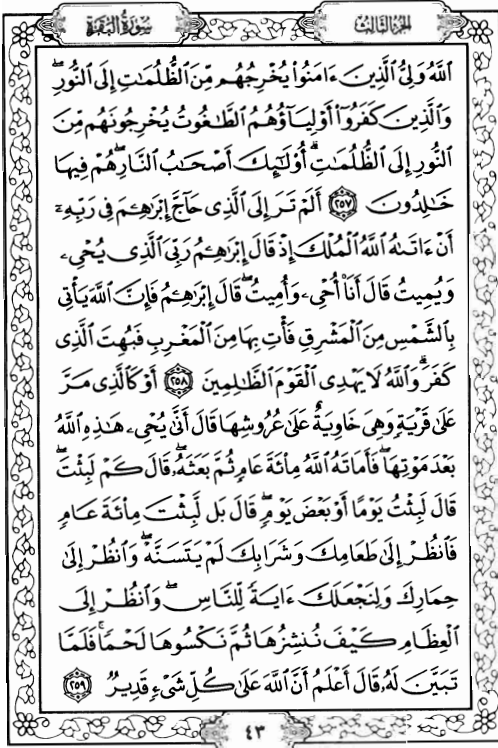 سورة البقرة
الجزء الثالث
ٱللَّهُ وَلِىُّ ٱلَّذِينَ ءَامَنُوا۟ يُخْرِجُهُم مِّنَ ٱلظُّلُمَٰتِ إِلَى ٱلنُّورِ ۖ
وَٱلَّذِينَ كَفَرُوٓا۟ أَوْلِيَآؤُهُمُ ٱلطَّٰغُوتُ يُخْرِجُونَهُم مِّنَ
ٱلنُّورِ إِلَى ٱلظُّلُمَٰتِ ۗ أُو۟لَٰٓئِكَ أَصْحَٰبُ ٱلنَّارِ ۖ هُمْ فِيهَا
خَٰلِدُونَ ٢٥٧ أَلَمْ تَرَ إِلَى ٱلَّذِى حَآجَّ إِبْرَٰهِۦمَ فِى رَبِّهِۦٓ
أَنْ ءَاتَىٰهُ ٱللَّهُ ٱلْمُلْكَ إِذْ قَالَ إِبْرَٰهِۦمُ رَبِّىَ ٱلَّذِى يُحْىِۦ
وَيُمِيتُ قَالَ أَنَا۠ أُحْىِۦ وَأُمِيتُ ۖ قَالَ إِبْرَٰهِۦمُ فَإِنَّ ٱللَّهَ يَأْتِى
بِٱلشَّمْسِ مِنَ ٱلْمَشْرِقِ فَأْتِ بِهَا مِنَ ٱلْمَغْرِبِ فَبُهِتَ ٱلَّذِى
كَفَرَ ۗ وَٱللَّهُ لَا يَهْدِى ٱلْقَوْمَ ٱلظَّٰلِمِينَ ٢٥٨ أَوْ كَٱلَّذِى مَرَّ
عَلَىٰ قَرْيَةٍ وَهِىَ خَاوِيَةٌ عَلَىٰ عُرُوشِهَا قَالَ أَنَّىٰ يُحْىِۦ هَٰذِهِ ٱللَّهُ
بَعْدَ مَوْتِهَا ۖ فَأَمَاتَهُ ٱللَّهُ مِا۟ئَةَ عَامٍ ثُمَّ بَعَثَهُۥ ۖ قَالَ كَمْ لَبِثْتَ ۖ
قَالَ لَبِثْتُ يَوْمًا أَوْ بَعْضَ يَوْمٍ ۖ قَالَ بَل لَّبِثْتَ مِا۟ئَةَ عَامٍ
فَٱنظُرْ إِلَىٰ طَعَامِكَ وَشَرَابِكَ لَمْ يَتَسَنَّهْ ۖ وَٱنظُرْ إِلَىٰ
حِمَارِكَ وَلِنَجْعَلَكَ ءَايَةً لِّلنَّاسِ ۖ وَٱنظُرْ إِلَى
ٱلْعِظَامِ كَيْفَ نُنشِزُهَا ثُمَّ نَكْسُوهَا لَحْمًا ۚ فَلَمَّا
تَبَيَّنَ لَهُۥ قَالَ أَعْلَمُ أَنَّ ٱللَّهَ عَلَىٰ كُلِّ شَىْءٍ قَدِيرٌ ٢٥٩
٤٣